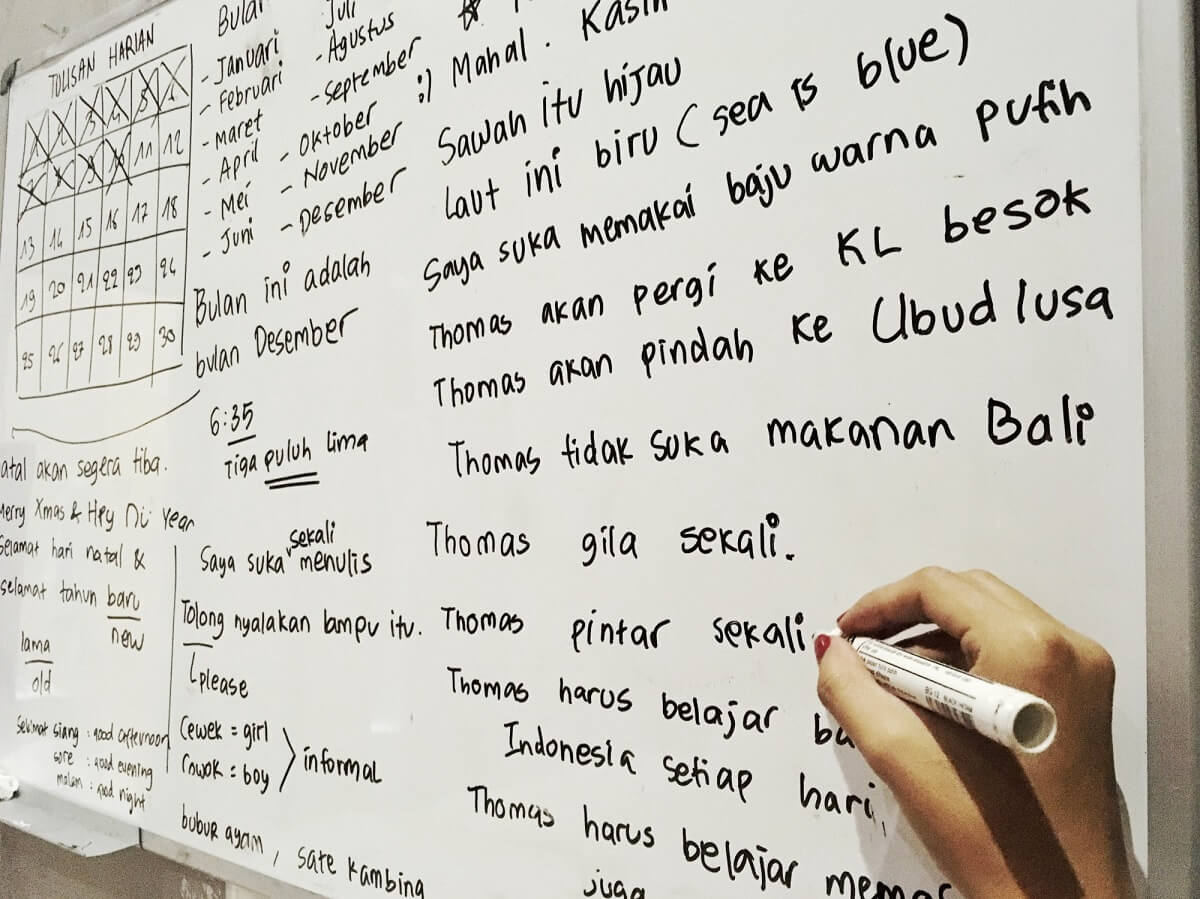 TULISAN HARIAN
1 2 3 4 5 6
7 8 9 10 11 12
13 14 15 16 17 18
19 20 21 22 23 24
25 26 27 28 29 30
Bulan
- Januari
- Februari
- maret
- April
- Mei
- Juni
Juli
- Agustus
- September
- Oktober
- November
- Desember
Bulan ini adalah
bulan Desember
6:35
Tiga puluh lima
atal akan segera tiba.
Merry Xmas & Hpy Ni Year
Selamat hari natal &
selamat tahun baru
new
lama
old
Selamat siang : good afternoon
sore : good evening
malam : good night
sekali
Saya suka menulis
Tolong nyalakan lampu itu.
please
Cewek = girl
Cowok = boy
informal
bubur ayam, sate kambing
:) Mahal. Kasih
Sawah itu hijau
Laut ini biru (sea is blue)
Saya suka memakai baju warna putih
Thomas akan pergi ke KL besok
Thomas akan pindah ke Ubud lusa
Thomas tidak suka makanan Bali
Thomas gila sekali.
Thomas pintar sekali.
Thomas harus belajar ba
Indonesia setiap hari,
Thomas harus belajar mema
juga